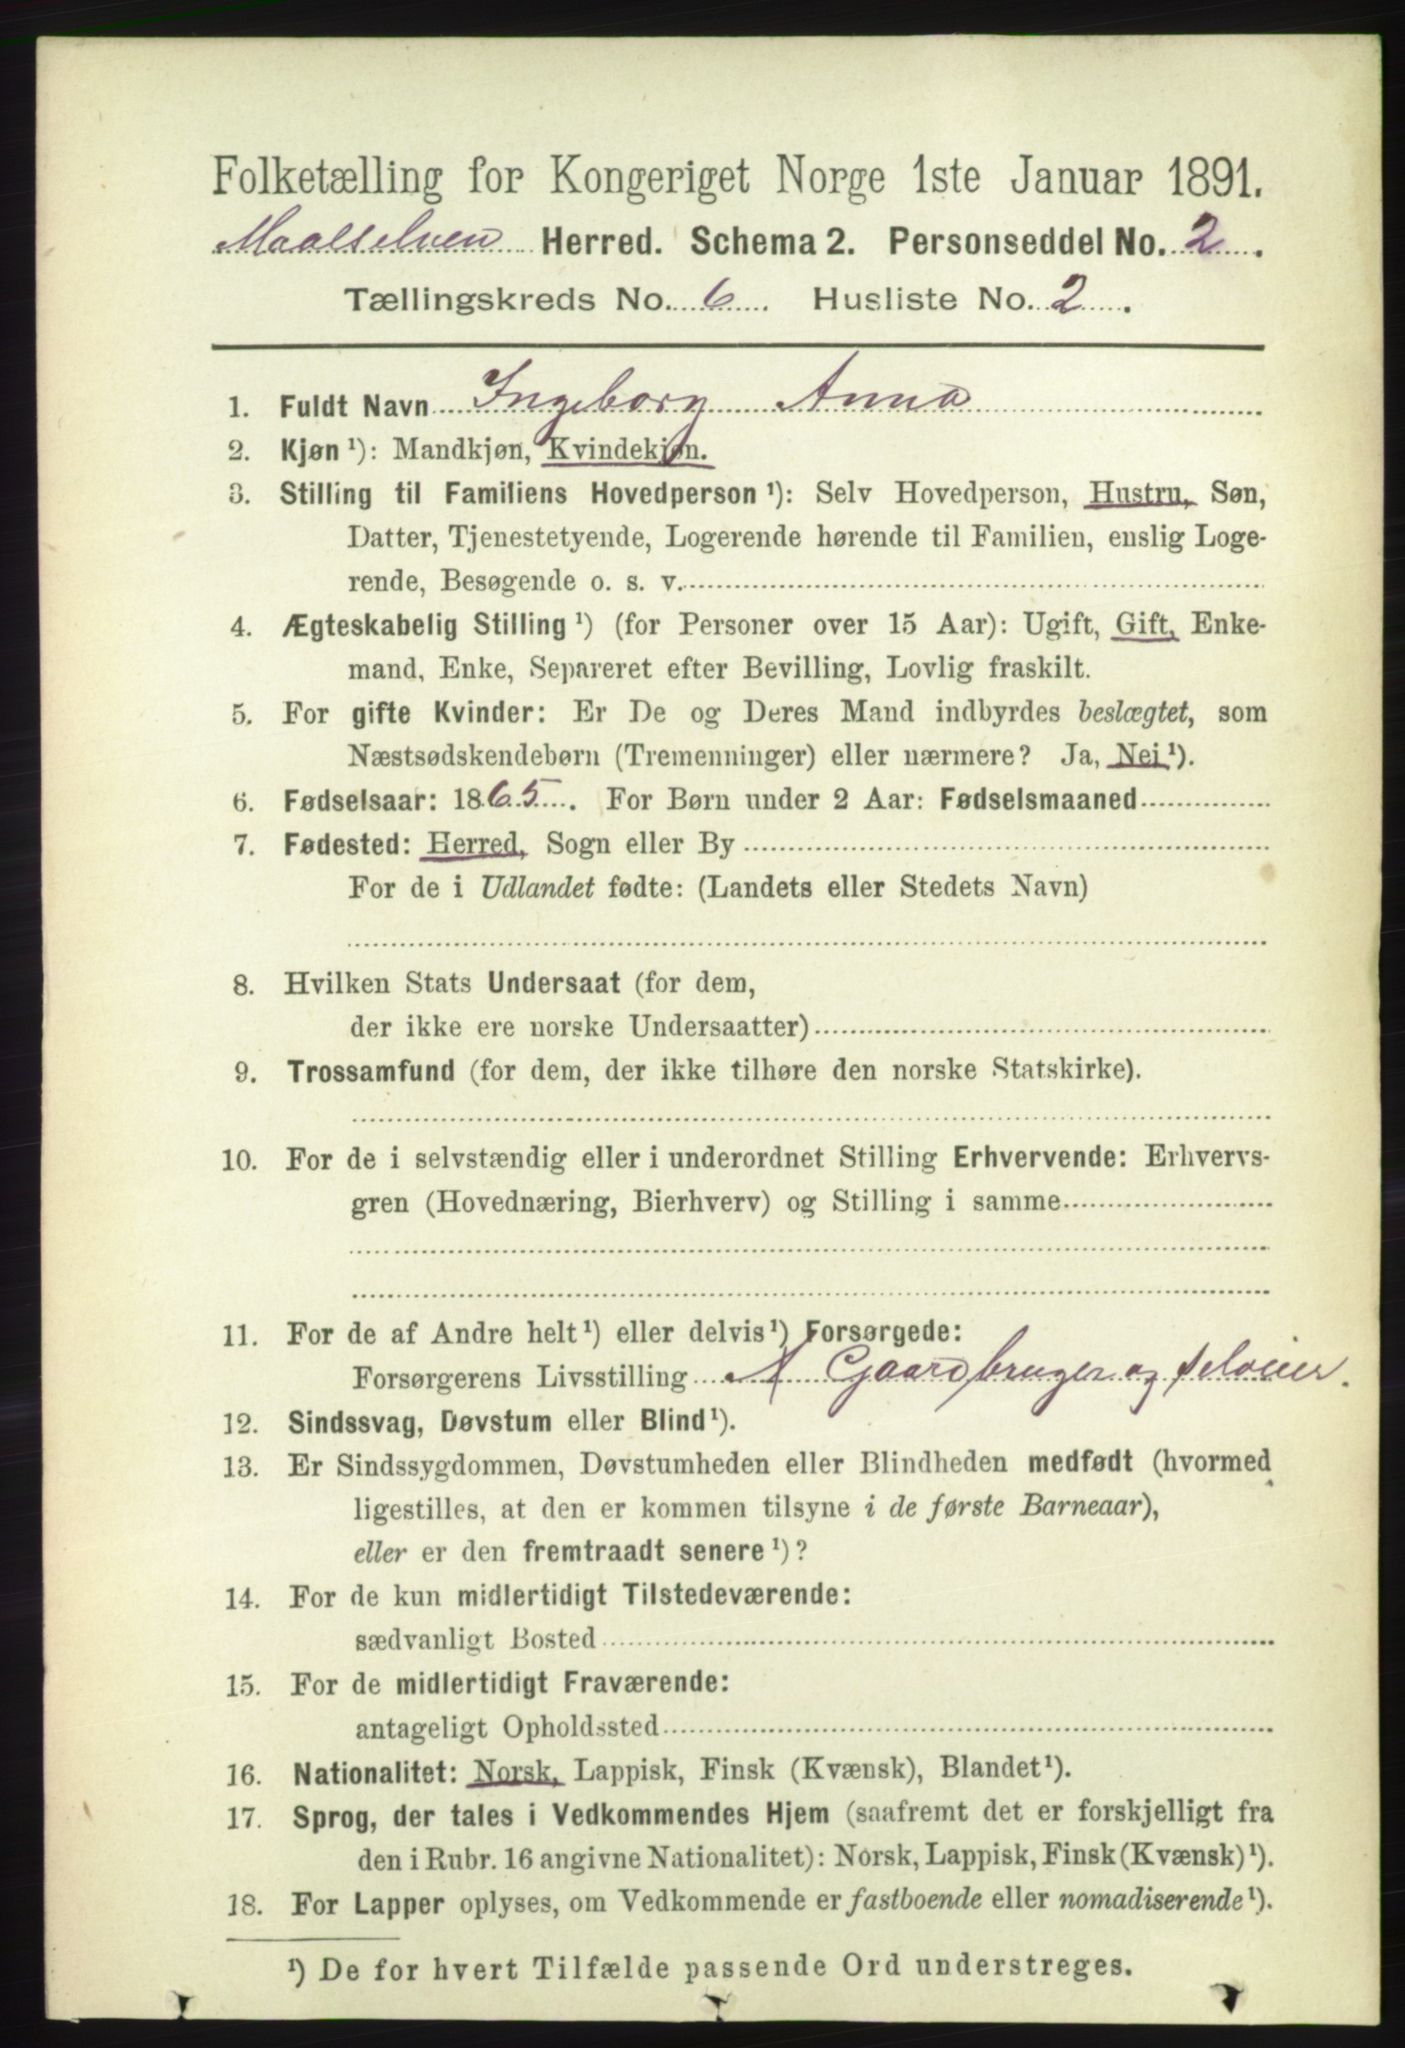 Folketælling for Kongeriget Norge 1ste Januar 1891.
Maalselven Herred. Schema 2. Personseddel No. 2.
Tællingskreds No. 6. Husliste No. 2.
1. Fuldt Navn Ingeborg Anna
2. Kjøn ¹): Mandkjøn, Kvindekjøn.
3. Stilling til Familiens Hovedperson ¹): Selv Hovedperson, Hustru, Søn,
Datter, Tjenestetyende, Logerende hørende til Familien, enslig Loge-
rende, Besøgende o. s. v.
4. Ægteskabelig Stilling ¹) (for Personer over 15 Aar): Ugift, Gift, Enke-
mand, Enke, Separeret efter Bevilling, Lovlig fraskilt.
5. For gifte Kvinder: Er De og Deres Mand indbyrdes beslægtet, som
Næstsødskendebørn (Tremenninger) eller nærmere? Ja, Nei ¹).
6. Fødselsaar: 1865. For Børn under 2 Aar: Fødselsmaaned
7. Fødested: Herred, Sogn eller By
For de i Udlandet fødte: (Landets eller Stedets Navn)
8. Hvilken Stats Undersaat (for dem,
der ikke ere norske Undersaatter)
9. Trossamfund (for dem, der ikke tilhøre den norske Statskirke).
10. For de i selvstændig eller i underordnet Stilling Erhvervende: Erhvervs-
gren (Hovednæring, Bierhverv) og Stilling i samme
11. For de af Andre helt ¹) eller delvis ¹) Forsørgede:
Forsørgerens Livsstilling A Gaardbruger og selveier.
12. Sindssvag, Døvstum eller Blind ¹).
13. Er Sindssygdommen, Døvstumheden eller Blindheden medfødt (hvormed
ligestilles, at den er kommen tilsyne i de første Barneaar),
eller er den fremtraadt senere ¹)?
14. For de kun midlertidigt Tilstedeværende:
sædvanligt Bosted
15. For de midlertidigt Fraværende:
antageligt Opholdssted
16. Nationalitet: Norsk, Lappisk, Finsk (Kvænsk), Blandet ¹).
17. Sprog, der tales i Vedkommendes Hjem (saafremt det er forskjelligt fra
den i Rubr. 16 angivne Nationalitet): Norsk, Lappisk, Finsk (Kvænsk) ¹).
18. For Lapper oplyses, om Vedkommende er fastboende eller nomadiserende ¹).
¹) De for hvert Tilfælde passende Ord understreges.